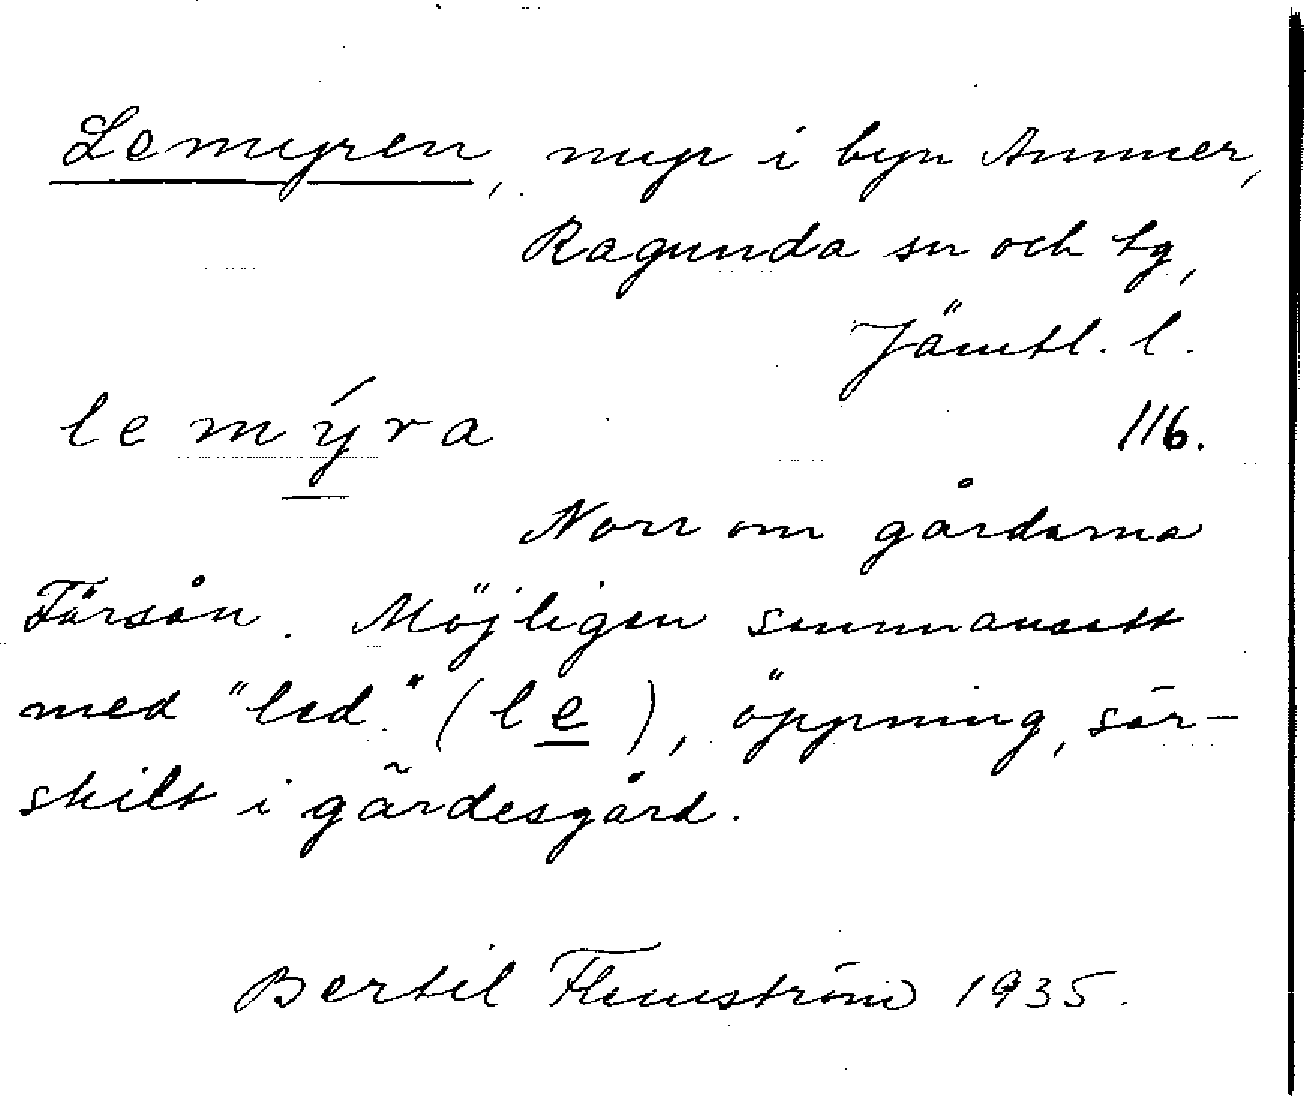 Lemyren, myr i byn Ammer,
Ragunda sn och tg,
Jämtl. l.
lemýra 116.
Norr om gårdarna
Försån. Möjligen sammansatt
med "led" (le), öppning, sär-
skilt i gärdesgård.
Bertil Flemström 1935.